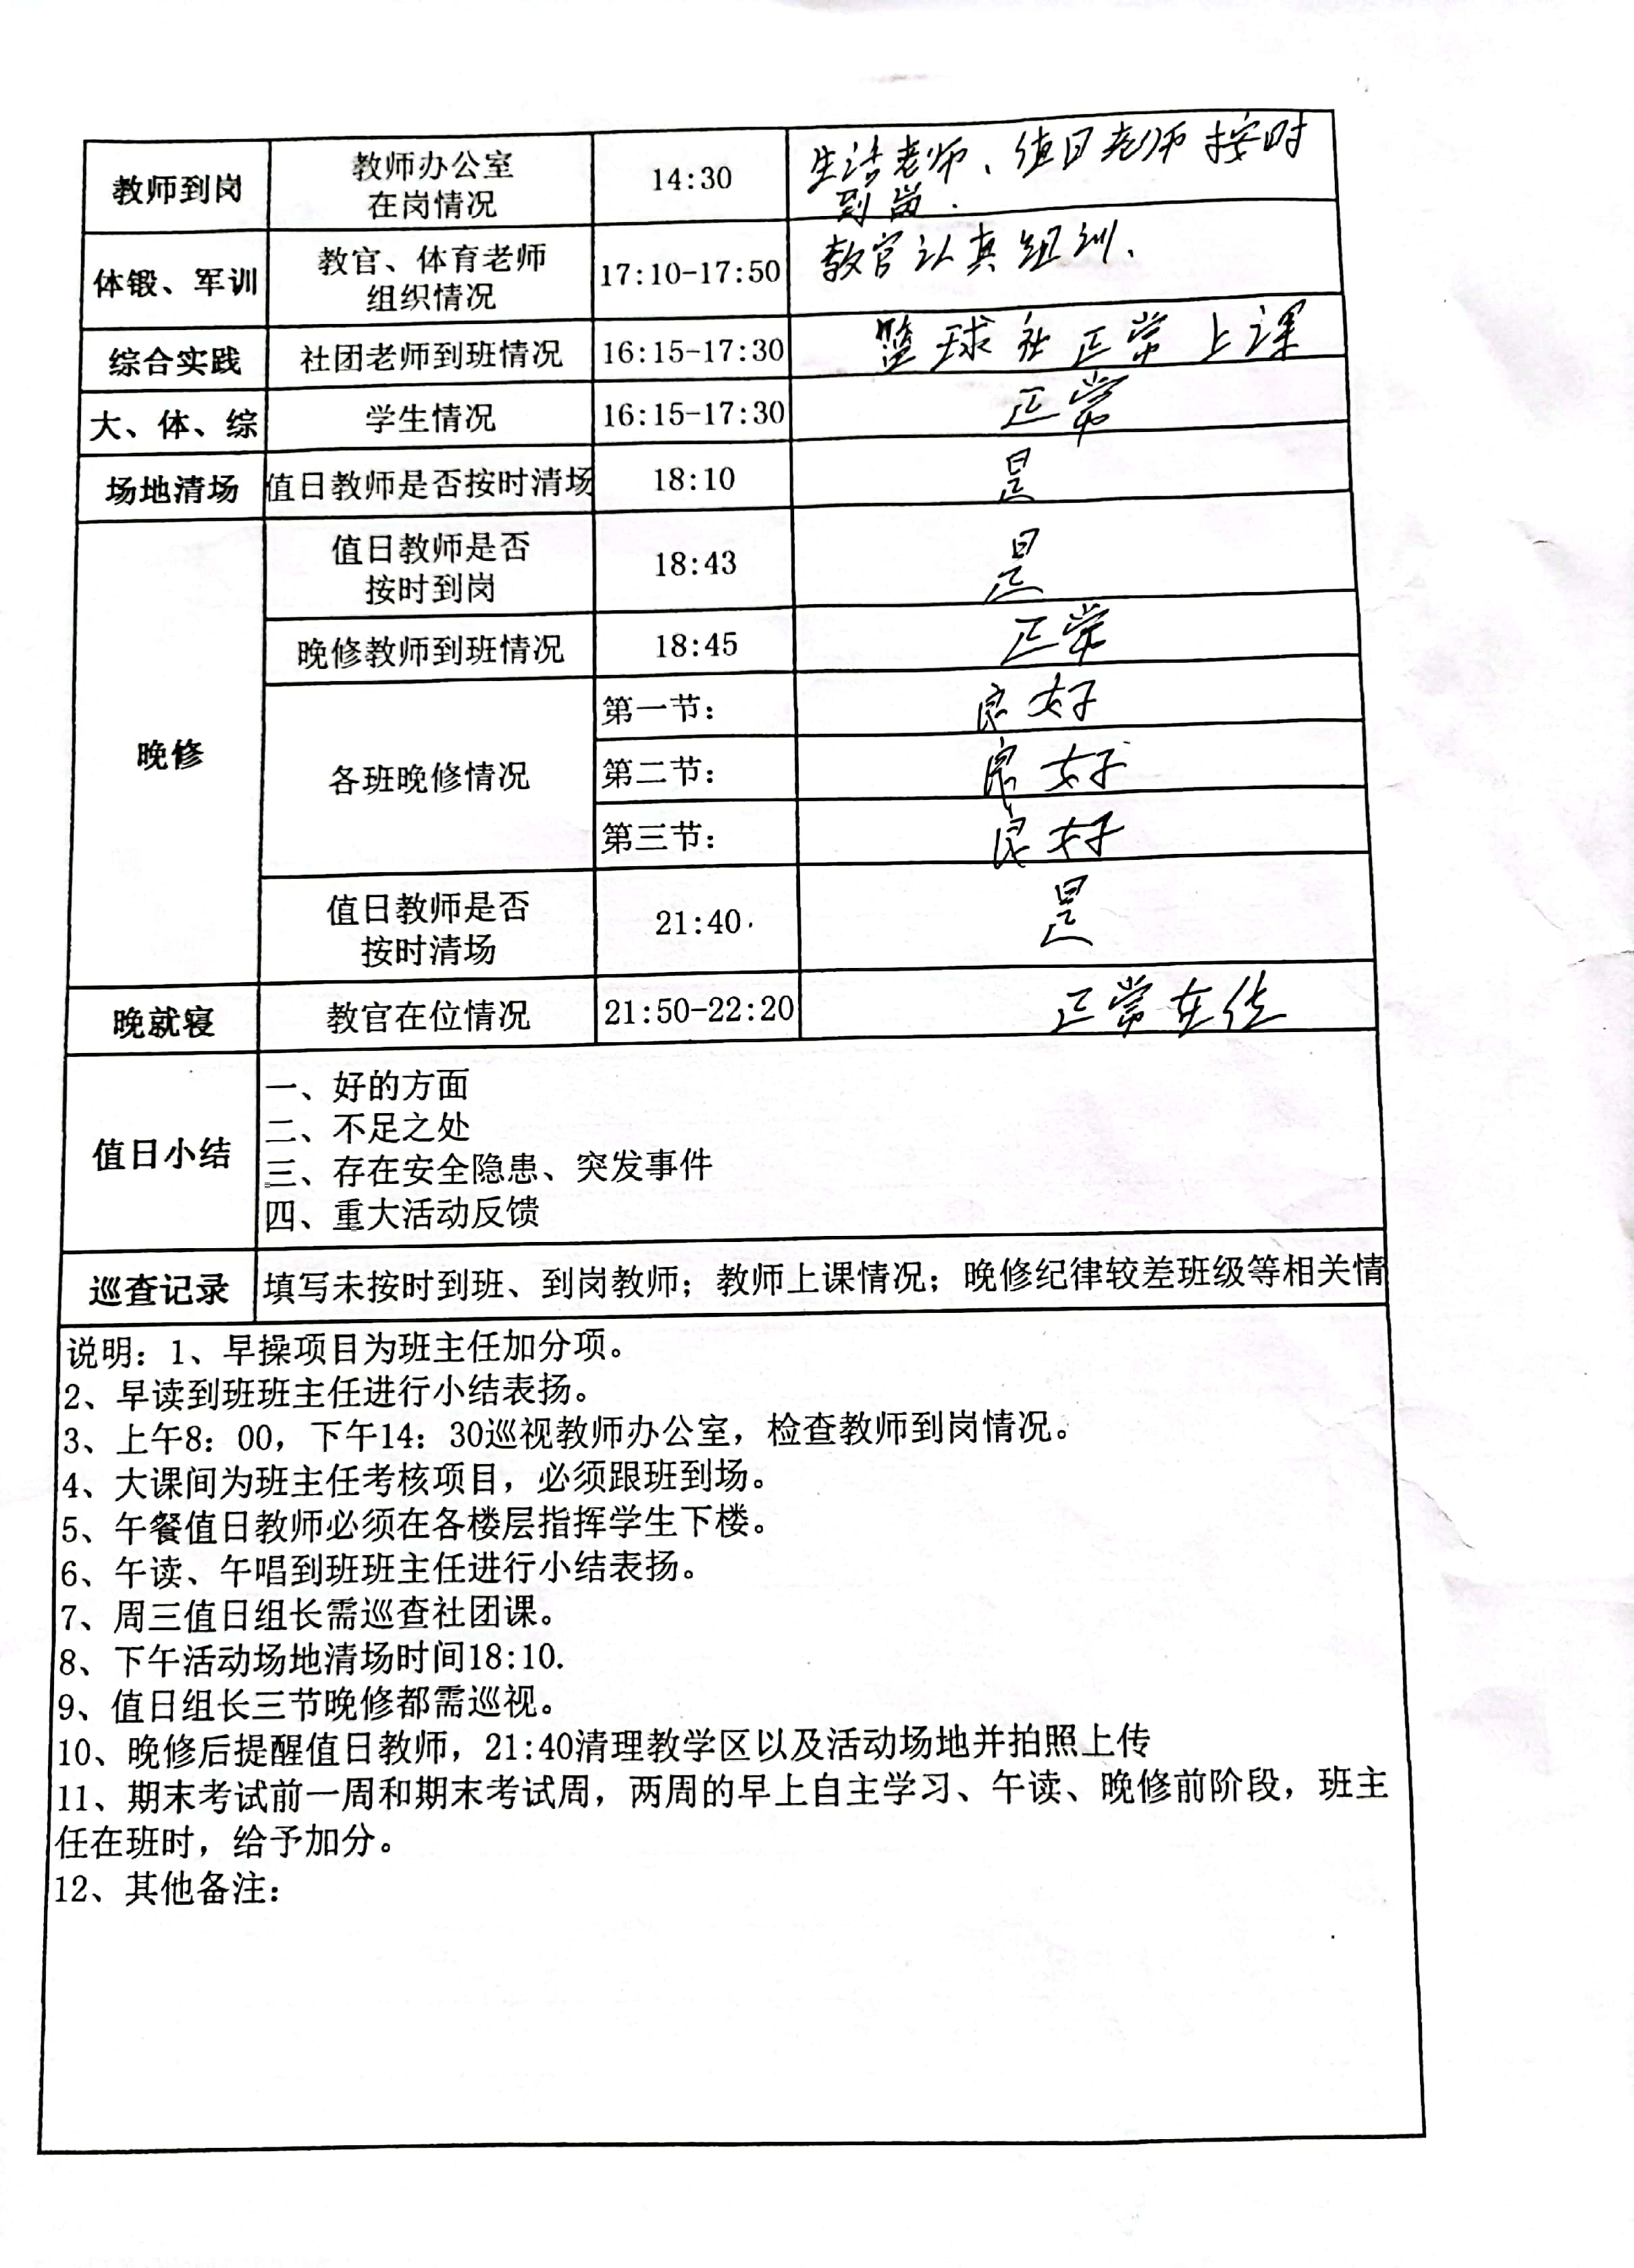 教师到岗 教师办公室 在岗情况 14:30 生活老师、值日老师按时
到岗.
体锻、军训 教官、体育老师 组织情况 17:10-17:50 教官认真组训、
综合实践 社团老师到班情况 16:15-17:30 篮球社正常上课
大、体、综 学生情况 16:15-17:30 正常
场地清场 值日教师是否按时清场 18:10 是
晚修 值日教师是否 按时到岗 18:43 是
晚修教师到班情况 18:45 正常
各班晚修情况 第一节： 良好
第二节： 良好
第三节： 良好
值日教师是否 按时清场 21:40 是
晚就寝 教官在位情况 21:50-22:20 正常在位
值日小结 一、好的方面
二、不足之处
三、存在安全隐患、突发事件
四、重大活动反馈
巡查记录 填写未按时到班、到岗教师；教师上课情况；晚修纪律较差班级等相关情
说明：1、早操项目为班主任加分项。
2、早读到班班主任进行小结表扬。
3、上午8：00，下午14：30巡视教师办公室，检查教师到岗情况。
4、大课间为班主任考核项目，必须跟班到场。
5、午餐值日教师必须在各楼层指挥学生下楼。
6、午读、午唱到班班主任进行小结表扬。
7、周三值日组长需巡查社团课。
8、下午活动场地清场时间18:10.
9、值日组长三节晚修都需巡视。
10、晚修后提醒值日教师，21:40清理教学区以及活动场地并拍照上传
11、期末考试前一周和期末考试周，两周的早上自主学习、午读、晚修前阶段，班主
任在班时，给予加分。
12、其他备注：